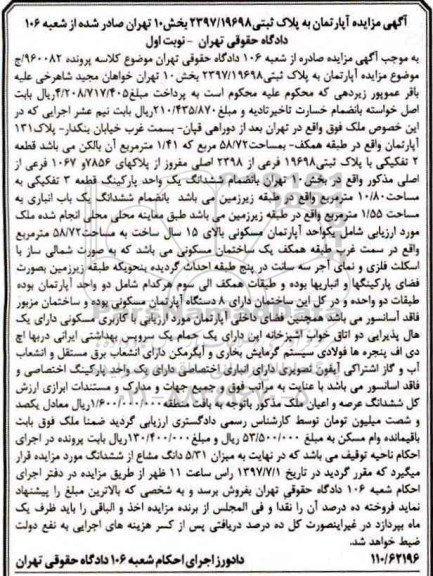 آگهی مزایده آپارتمان به پلاک ثبتی ۲۳۹۷/۱۹۶۹۸ بخش ۱۰ تهران صادر شده از شعبه ۱۰۶
دادگاه حقوقی تهران - نوبت اول
به موجب آگهی مزایده صادره از شعبه ۱۰۶ دادگاه حقوقی تهران موضوع کلاسه پرونده ۹۶۰۰۸۲/ج
موضوع مزایده آپارتمان به پلاک ثبتی ۲۳۹۷/۱۹۶۹۸ بخش ۱۰ تهران خواهان مجید شاهرخی علیه
باقر عموپور زیردهی که محکوم علیه محکوم است به پرداخت مبلغ ۴/۲۰۸/۷۱۷/۴۰۵ ریال بابت
اصل خواسته بانضمام خسارت تاخیر تادیه و مبلغ ۲۱۰/۴۳۵/۸۷۰ ریال بابت نیم عشر اجرایی که در
این خصوص ملک فوق واقع در تهران بعد از دوراهی قپان- بسمت غرب خیابان بنکدار- پلاک ۱۳۱
آپارتمان واقع در طبقه همکف- بمساحت ۵۸/۷۲ مربع که ۱/۴۱ مترمربع آن بالکن می باشد قطعه
۲ تفکیکی با پلاک ثبتی ۱۹۶۹۸ فرعی از ۲۳۹۸ اصلی مفروز از پلاکهای ۷۸۵۶ و ۱۰۶۷ فرعی از
اصلی مذکور واقع در بخش ۱۰ تهران بانضمام ششدانگ یک واحد پارکینگ قطعه ۳ تفکیکی به
مساحت ۱۰/۸۰ مترمربع واقع در طبقه زیرزمین می باشد بانضمام ششدانگ یک باب انباری به
مساحت ۱/۵۵ مترمربع واقع در طبقه زیرزمین می باشد طبق معاینه محلی محلی انجام شده ملک
مورد ارزیابی شامل یکواحد آپارتمان مسکونی بالای ۱۵ سال ساخت به مساحت ۵۸/۷۲ مترمربع
واقع در سمت غرب طبقه همکف یک ساختمان مسکونی می باشد که به صورت شمالی ساز با
اسکلت فلزی و نمای آجر سه سانت در پنج طبقه احداث گردیده بنحویکه طبقه زیرزمین بصورت
فضای پارکینگها و انباریها بوده و طبقات همکف الی سوم هرکدام شامل دو واحد آپارتمان بوده
طبقات دو واحده و در کل این ساختمان دارای ۸ دستگاه آپارتمان مسکونی بوده و ساختمان مزبور
فاقد آسانسور می باشد همچنین فضای داخلی آپارتمان مورد ارزیابی با کاربری مسکونی دارای یک
هال پذیرایی دو اتاق خواب آشپزخانه اپن دارای یک حمام یک سرویس بهداشتی ایرانی دربها اچ
دی اف پنجره ها فولادی سیستم گرمایش بخاری و آبگرمکن دارای انشعاب برق مستقل و انشعاب
آب و گاز اشتراکی آیفون تصویری دارای انباری اختصاصی دارای یک واحد پارکینگ اختصاصی و
فاقد آسانسور می باشد با عنایت به مراتب فوق و جمیع جهات و مدارک و مستندات ابرازی ارزش
کل ششدانگ عرصه و اعیان ملک مذکور باتوجه به بافت منطقه ۱/۶۰۰/۰۰۰/۰۰۰ ریال معادل یکصد
و شصت میلیون تومان توسط کارشناس رسمی دادگستری ارزیابی گردید ضمنا ملک فوق بابت
باقیمانده وام مسکن به مبلغ ۵۳/۵۰۰/۰۰۰ ریال و مبلغ ۱۳۰/۴۰۰/۰۰۰ ریال بابت پرونده در اجرای
احکام ناحیه توقیف می باشد که در نهایت به میزان ۵/۳۱ دانگ مشاع از ششدانگ مورد مزایده قرار
میگیرد که مقرر گردید در تاریخ ۱۳۹۷/۷/۱ راس ساعت ۱۱ ظهر از طریق مزایده در دفتر اجرای
احکام شعبه ۱۰۶ دادگاه حقوقی تهران بفروش برسد و به شخصی که بالاترین مبلغ را پیشنهاد
نماید فروخته ده درصد آن را نقدا و فی المجلس از برنده مزایده اخذ و الباقی را باید ظرف یک
ماه بپردازد در غیراینصورت کل ده درصد دریافتی پس از کسر هزینه های اجرایی به نفع دولت
ضبط خواهد شد.
۱۱۰/۶۲۱۹۶ دادورز اجرای احکام شعبه ۱۰۶ دادگاه حقوقی تهران